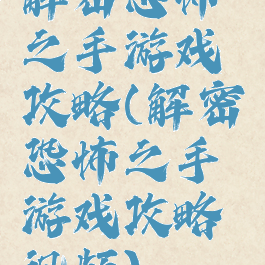 解密恐怖
之手游戏
攻略(解密
恐怖之手
游戏攻略
视频)